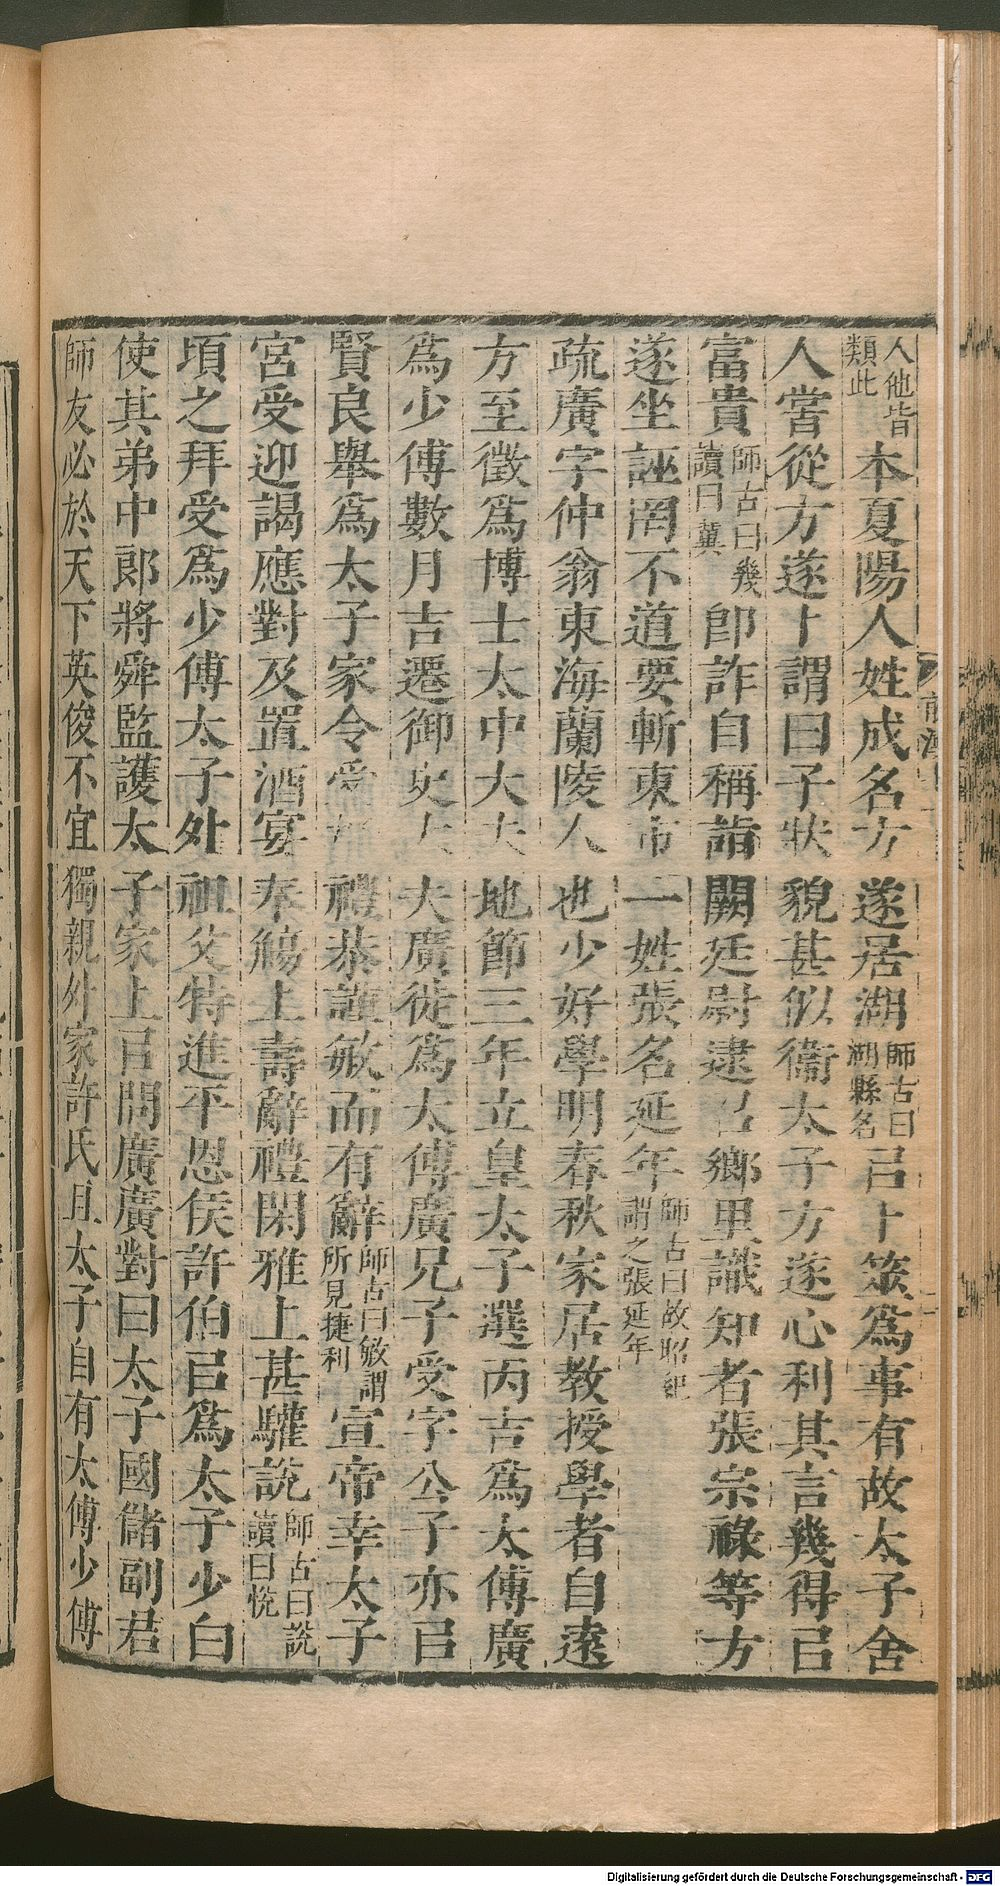 人他皆類此本夏陽人姓成名方遂居湖師古曰湖縣名㠯卜筮爲事有故太子舍
人嘗從方遂卜謂曰子狀貌甚似衞太子方遂心利其言幾得㠯
富貴師古曰幾讀曰冀即詐自稱詣闕廷尉逮召鄉里識知者張宗祿等方
遂坐誣罔不道要斬東市一姓張名延年師古曰故昭紀謂之張延年
疏廣字仲翁東海蘭陵人也少好學明春秋家居教授學者自遠
方至徵爲博士太中大夫地節三年立皇太子選丙吉爲太傅廣
爲少傅數月吉遷御史大夫廣徙爲太傅廣兄子受字公子亦㠯
賢良舉爲太子家令受好禮恭謹敏而有辭師古曰敏謂所見捷利宣帝幸太子
宮受迎謁應對及置酒宴奉觴上壽辭禮閑雅上甚驩說師古曰說讀曰悅
頃之拜受爲少傅太子外祖父特進平恩侯許伯㠯爲太子少白
使其弟中郎將舜監護太子家上㠯問廣廣對曰太子國儲副君
師友必於天下英俊不宜獨親外家許氏且太子自有太傅少傅
Digitalisierung gefördert durch die Deutsche Forschungsgemeinschaft - DFG